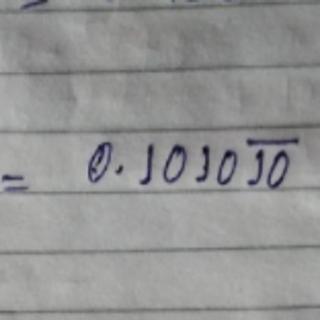 = 0.1010\overline{10}